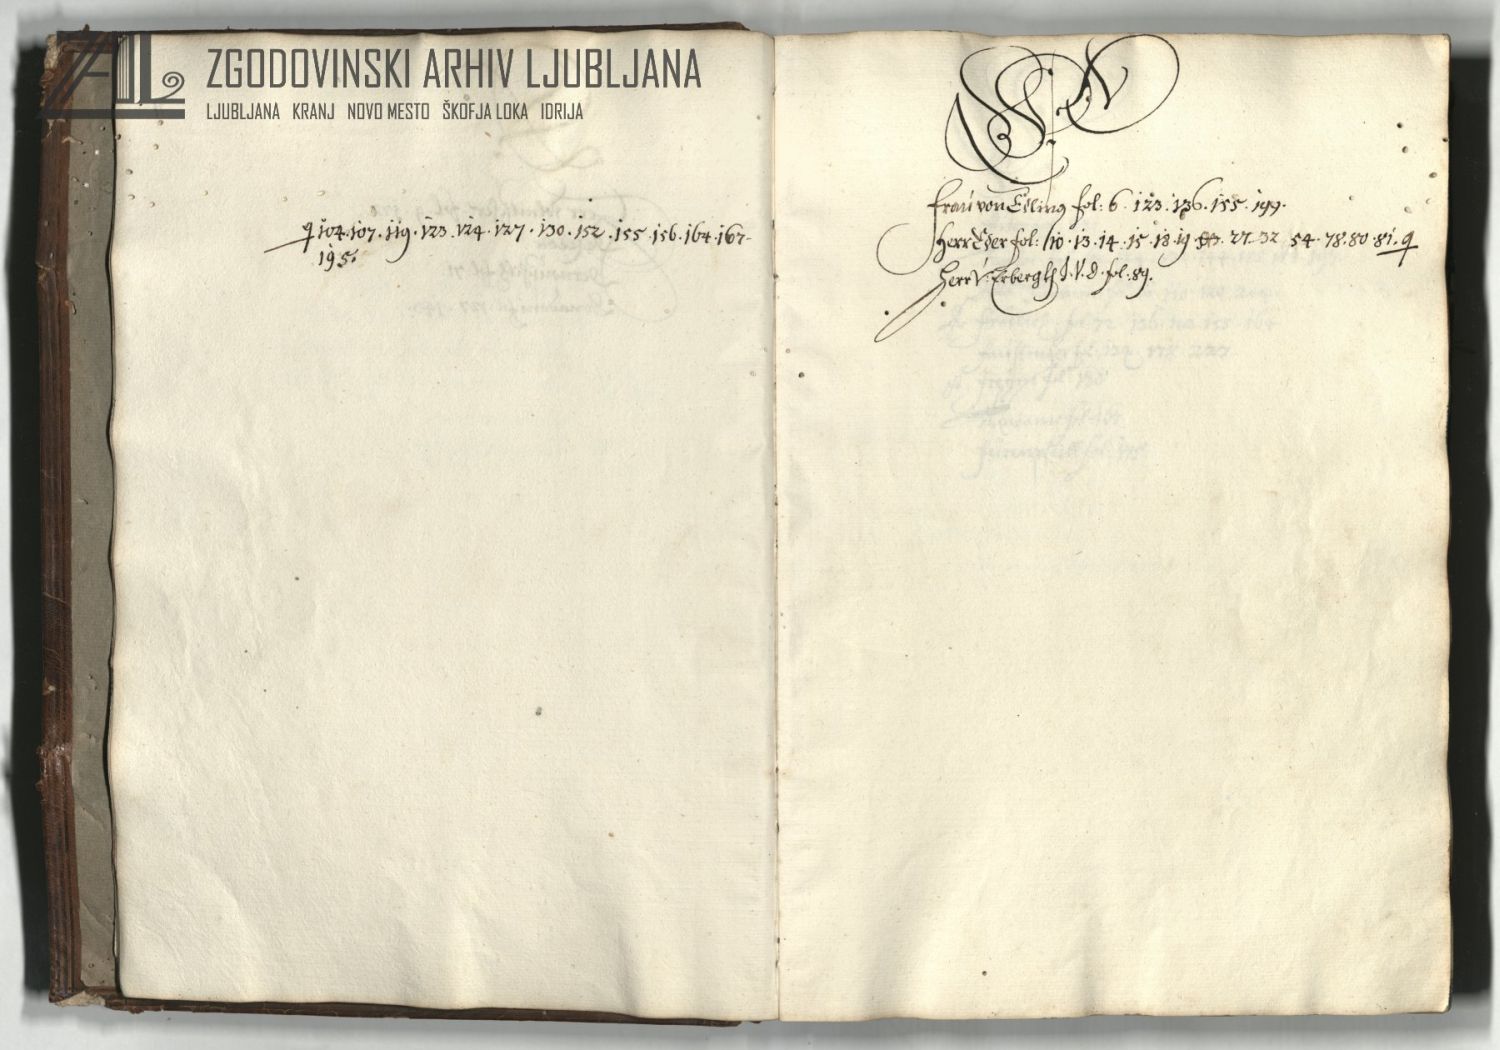 ZGODOVINSKI ARHIV LJUBLJANA
LJUBLJANA KRANJ NOVO MESTO ŠKOFJA LOKA IDRIJA
104. 107. 119. 123. 124. 127. 130. 152. 155. 156. 164. 167.
195.
E
Frau von Edling fol: 6. 123. 136. 155. 199.
Herr Eder fol: 10. 13. 14. 15. 18. 19 27. 32 54. 78. 80. 81.
Herr V. Erbergkh I. V. d. fol. 89.